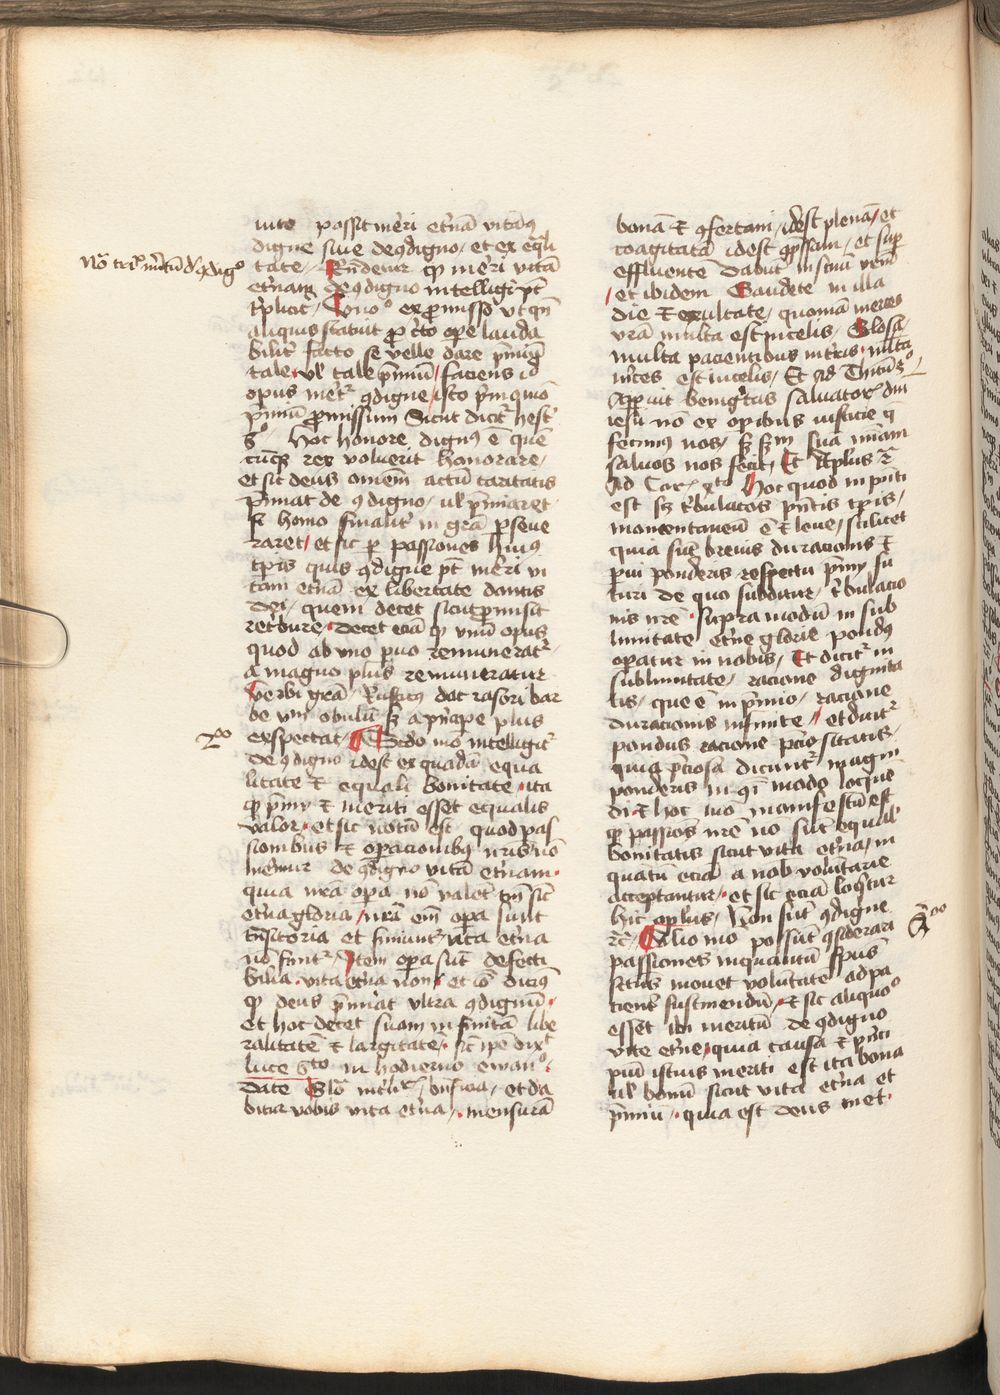 iuto possit mēri et'nā vitā
digne siue de ꝯdigno / et ex eq̄li
tate / Rn̄detur ꝙ mēri vitā
et'nam de ꝯdigno intelligi pt̄
tͥplicit' / Primo ex promisso vt qn̄
aliquis statuit ꝓ c'to opere lauda
bilit' facto se velle dare p̄miū
tale vl' tale p̄miū / faciens id
opus met' ꝯdigne isto
p̄miū ꝓmissum Sicut dicit' hest'
Hoc honore dignus ē que
cūqꝫ rex voluerit honorare /
et sic deus omēm actū caritatis
p̄miat de ꝯdigno / vl' p̄miaret
sꝫ homo finalit' in grā ꝑseue
raret / et sic ꝑ passiones huiꝯ
tꝑis quis ꝯdigne pt̄ mēri vi
tam et'nā ex libertate dantis
dei / quem decet sicut ꝓmisit
ret'buere / decet eciā ꝙ vnū opus
quod ab vno ꝑuo remunerat'
a magno plus remuneratur
verbi grā / Rusticus dat rasori bar
be vnū obulū sꝫ a pͥncipe plus
exspectat / Secdo mō intelligit'
de ꝯdigno idest ex quadā equa
litate et equali bonitate / ita
ꝙ p̄mij et meriti esset equalis
valor / et sic notū est quod pas
sionibus et operacionibꝯ nr̄is nō
mēmur de ꝯdigno vitā et'nam
quia nr̄a opa nō valet tm̄ sic
et'na gloria / nr̄a em̄ opa sunt
tn̄sitoria et finiunt' / vita et'na
nō finit' / Item opa sūt defecti
bilia / vita et'na non / et iō dicimꝯ
ꝙ deus p̄miat vltra ꝯdignū
et hoc decet suam infinitā libe
ralitatē et largitatē / sic ip̄e dixͭ
luce 6to in hodierno ewano
Date Glo / et da
bitur vobis vita et'na / mensurā
Nō
2o
bonā et ꝯfertam / idest plenā / et
coagitatā idest ꝯp̄ssam / et suꝑ
effluente dabūt in sinū vr̄m
et ibidem Gaudete in illa
die et exultate / quoniam merces
vr̄a multa est in celis / Glosa
multa pacientibus in tͤris multa
m'ces est in celis / Et ad Thitū 3o
Apparuit benignͥtas saluatoris dn̄i
iesu nō ex oꝑibus iusticie q̄
fecimꝯ nos / sꝫ sm̄ suā mīam
saluos nos fecit / Et Apl'us 2a
ad Cor / 4to Hoc quod in pn̄ti
est sꝫ t'bulacōis pn̄tis tꝑis /
momentaneū ē et leue / scilicet
quia sūt breuis duracionis et
ꝑui ponderis respectu p̄mij fu
turi de quo subditur / t'bulacio
nis nr̄e supra modū in sub
limitate et'ne glorie pondꝯ
operatur in nobis / Et dicit' in
sublimitate / racione dignita
tis / que ē in p̄mio / racione
duracionis infinite / et dicit'
pondus racione p̄ciositatis /
quia p̄ciosa dicunt' magni
ponderis in qͥ modo loquē
di / et hoc mō manifestū est
ꝙ passiōs nr̄e nō sūt equal'
bonitatis sicut vita et'na / in
quātū eciā a nob' volūtarie
acceptantur / et sic eciā loqͥtur
hic apl'us / Non sūt ꝯdigne
rc̄ / Alio mō possūt ꝯsiderari
passiones inquātū spūs
sctūs mouet volūtatē ad pa
cient' sustinendū / et sic aliquoo
esset ibi meritū de ꝯdigno
vite et'ne / quia causa et pn̄ci
piū istius meriti est ita bona
vl' bonū sicut vita et'na et
p̄miū / quia est deus met